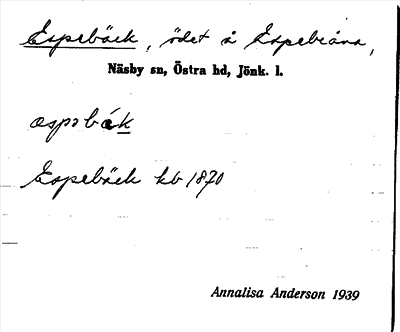 Espebäck, ödet å Espebråna,
Näsby sn, Östra hd, Jönk. l.
æspəbäk
Espebäck kb 1870
Annalisa Anderson 1939